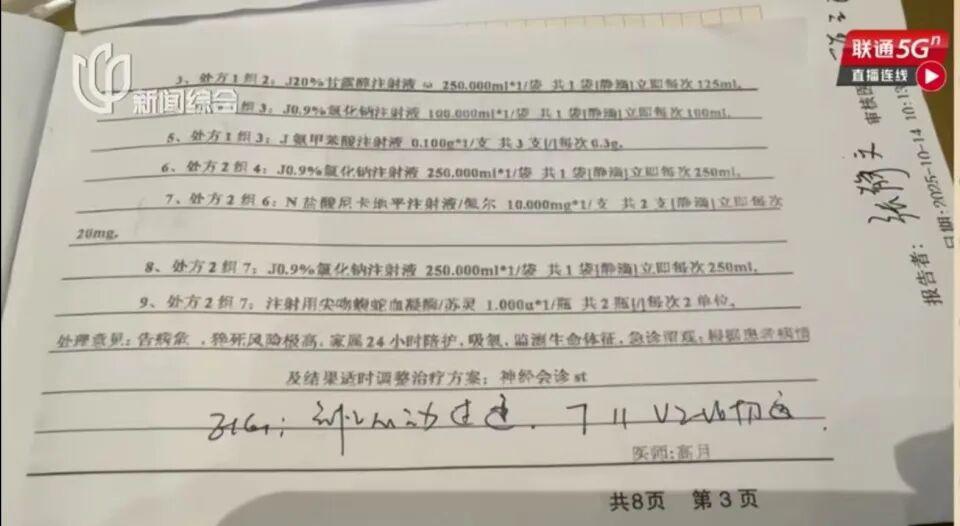 新闻综合
联通5Gⁿ
直播连线
3、处方1组2：J20%甘露醇注射液 ω 250.000ml*1/袋 共1袋[静滴]立即每次125ml。
组3：J0.9%氯化钠注射液 100.000ml*1/袋 共1袋[静滴]立即每次100ml。
5、处方1组3：J氨甲苯酸注射液 0.100g*1/支 共3支[/]每次0.3g。
6、处方2组4：J0.9%氯化钠注射液 250.000ml*1/袋 共1袋[静滴]立即每次250ml。
7、处方2组6：N盐酸尼卡地平注射液/佩尔 10.000mg*1/支 共2支[静滴]立即每次
20mg。
8、处方2组7：J0.9%氯化钠注射液 250.000ml*1/袋 共1袋[静滴]立即每次250ml。
9、处方2组7：注射用尖吻蝮蛇血凝酶/苏灵 1.000u*1/瓶 共2瓶[/]每次2单位。
处理意见：告病危，猝死风险极高，家属24小时陪护，吸氧，监测生命体征，急诊留观；根据患者病情
及结果适时调整治疗方案；神经会诊st
医师：高月
共8页 第3页
报告者：
日期:2025-10-14 10:13
审核医